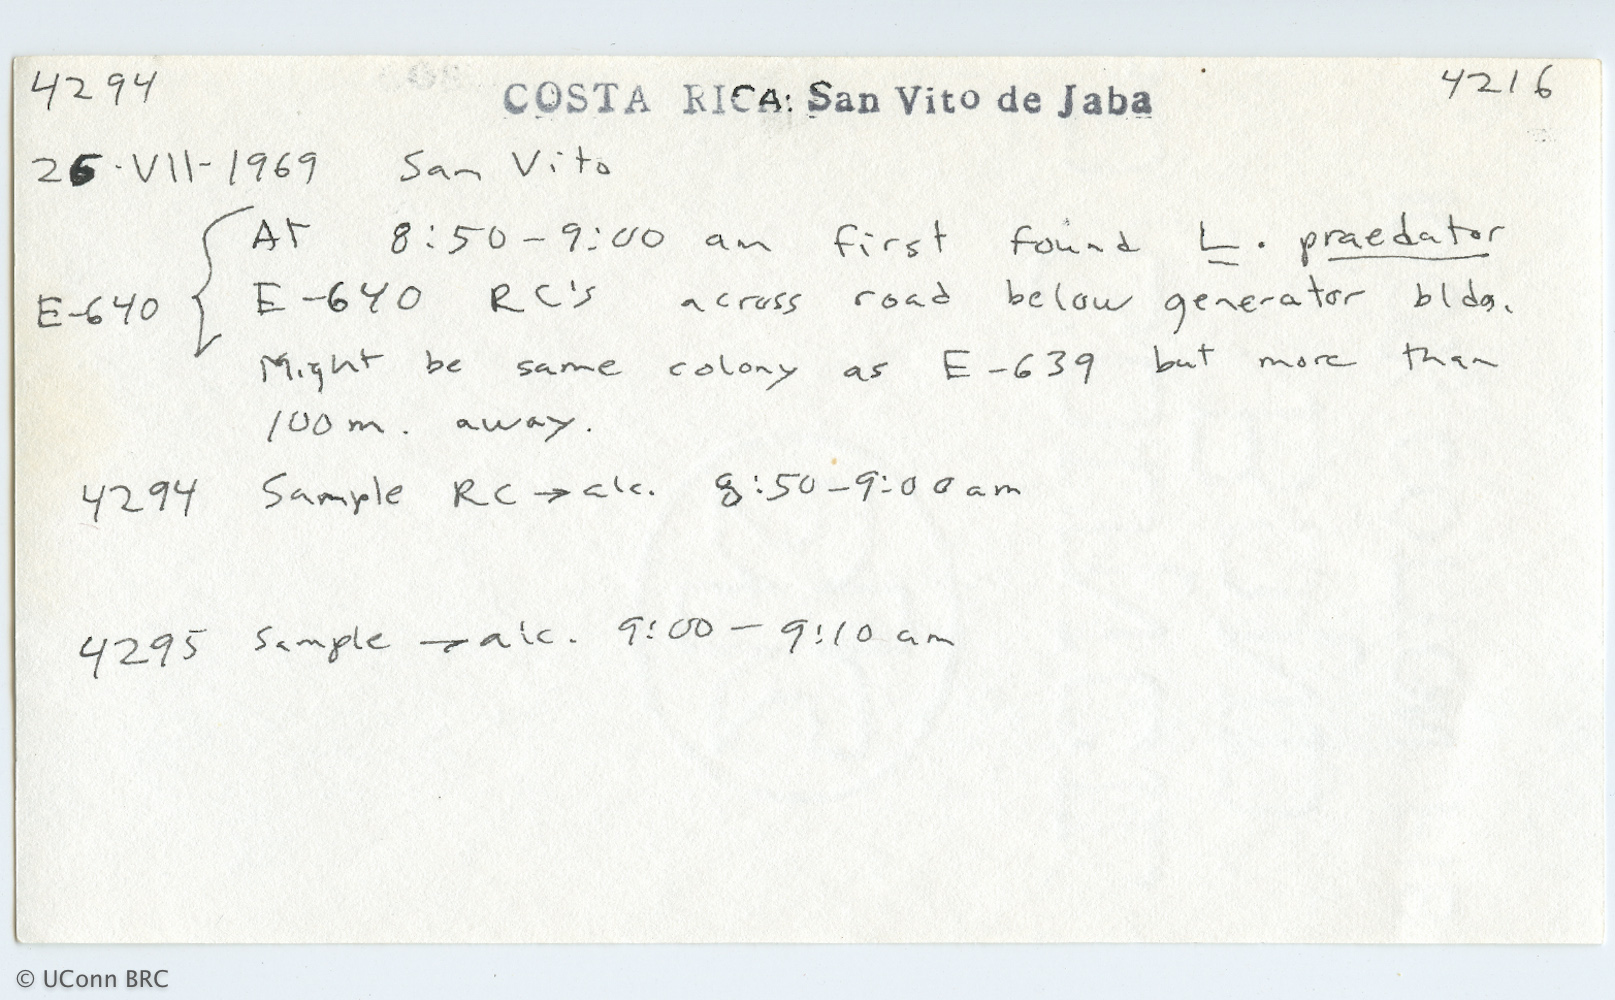 4294 COSTA RICA: San Vito de Jaba 4216
26-VII-1969 San Vito
At 8:50-9:00 am first found L. praedator
E-640 E-640 RC's across road below generator bldg.
Might be same colony as E-639 but more than
100 m. away.
4294 Sample RC → alc. 8:50-9:00 am
4295 Sample → alc. 9:00 - 9:10 am
© UConn BRC